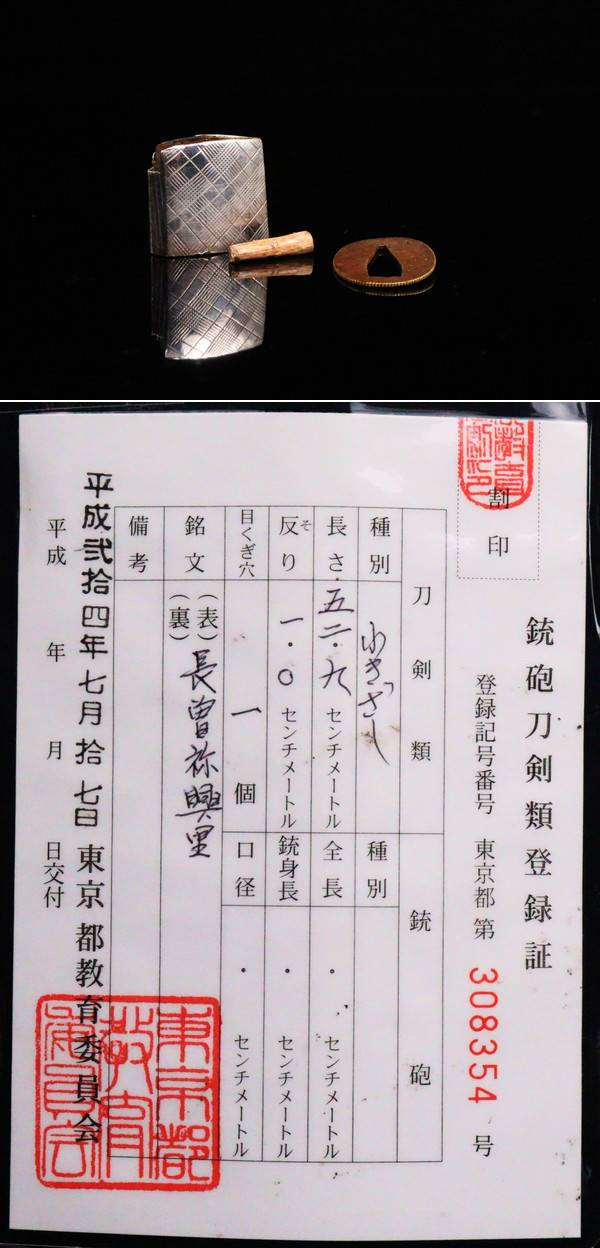 銃砲刀剣類登録証
割印
登録記号番号 東京都 第 308354 号
刀剣類
種別 わきざし
長さ 五二・九 センチメートル
反り そ 一・〇 センチメートル
目くぎ穴 一 個
銘文 (表) 長曽祢興里
(裏)
備考
銃砲
種別
全長 ・ センチメートル
銃身長 ・ センチメートル
口径 ・ センチメートル
平成弐拾四年七月拾七日 東京都教育委員会
平成 年 月 日交付
東京都教育委員会